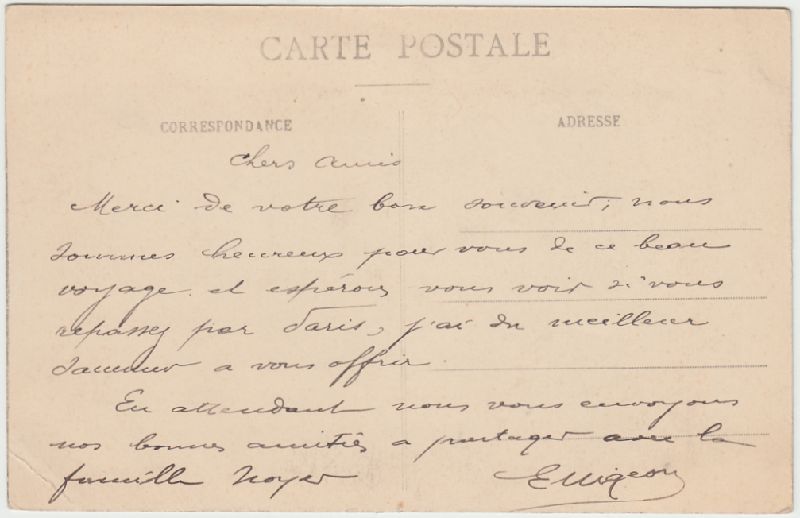 CARTE POSTALE
CORRESPONDANCE
ADRESSE
Chers amis
Merci de votre bon souvenir, nous
sommes heureux pour vous de ce beau
voyage et espérons vous voir si vous
repassez par Paris, j'ai du meilleur
Saumur a vous offrir.
En attendant nous vous envoyons
nos bonnes amitiés a partager avec la
famille Noyer